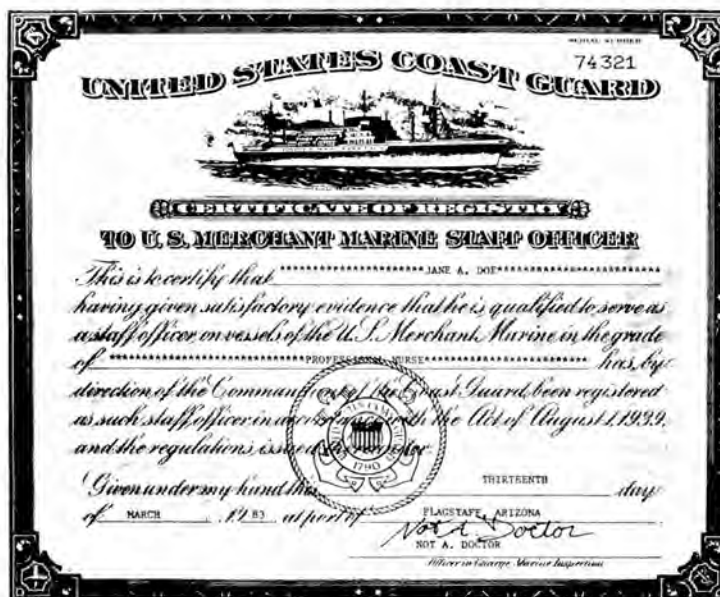 SERIAL NUMBER
74321
UNITED STATES COAST GUARD
CERTIFICATE OF REGISTRY
TO U. S. MERCHANT MARINE STAFF OFFICER
This is to certify that ********************JANE A. DOE**********************
having given satisfactory evidence that he is qualified to serve as
a staff officer on vessels of the U. S. Merchant Marine in the grade
of **************************PROFESSIONAL NURSE************************* has, by
direction of the Commandant of the Coast Guard, been registered
as such staff officer in accordance with the Act of August 1, 1939,
and the regulations issued thereunder.
1790
Given under my hand this THIRTEENTH day
of MARCH , 1983 at port of FLAGSTAFF, ARIZONA
Not A Doctor
NOT A. DOCTOR
Officer in Charge Marine Inspection